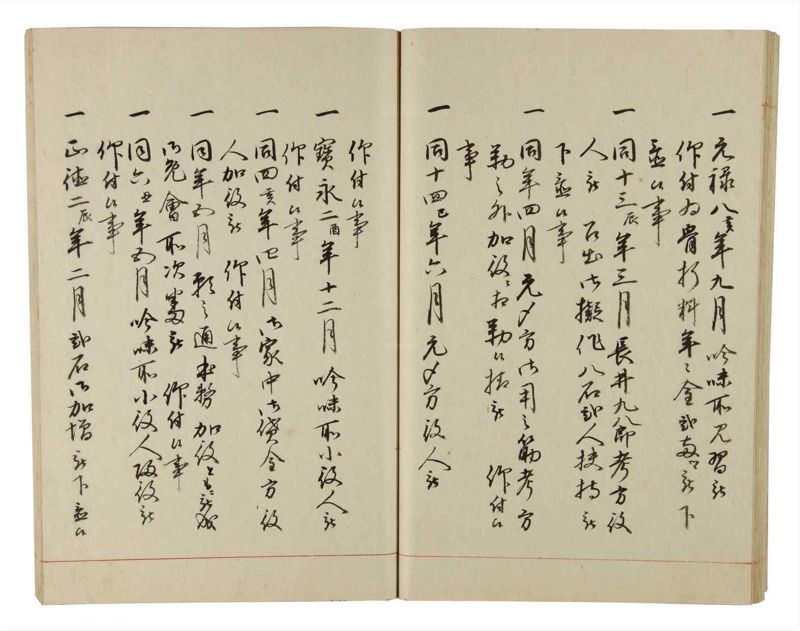 一 元禄八亥年九月 吟味所見習被
仰付為骨折料年々金弐両ツヽ被下
置候事
一 同十三辰年三月 長井九八郎考方役
人被 召出御擬作八石弐人扶持被
下置候事
一 同年四月 元〆方御用之節考方
勤之外加役ニ相勤候様被 仰付候
事
一 同十四巳年六月 元〆方役人被
仰付候事
一 寳永二酉年十二月 吟味所小役人被
仰付候事
一 同四亥年四月 御家中御貸金方役
人加役被 仰付候事
一 同年五月 願之通 加役
御免會所次 被 仰付候事
一 同六丑年五月 吟味所小役人 役被
仰付候事
一 正徳二辰年二月 弐石御加増被下置候